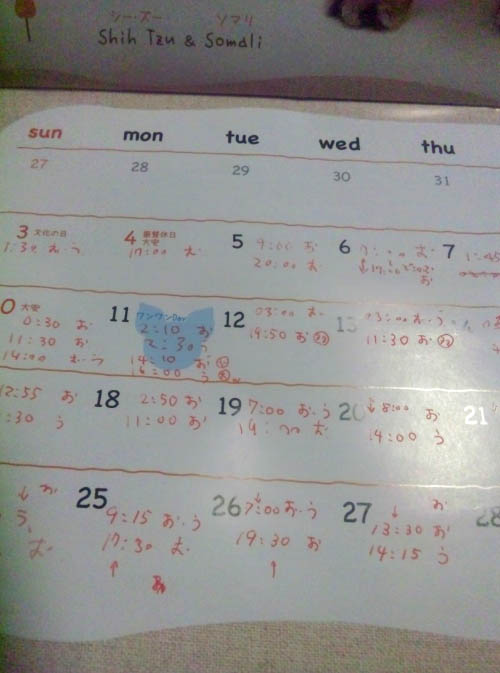 シー・ズー ソマリ
Shih Tzu & Somali
sun mon tue wed thu
27 28 29 30 31
3 文化の日
4 振替休日
大安
17:00 お
5 9:00 お
20:00 お
6
7 1:45
0 大安
0:30 お
11:30 お
14:00 お・う
11 ワンワンDay
2:10 お
2:30 う
14:10 お
16:00 う
12 03:00 お
19:50 お
13 03:00 お・う
11:30 お
12:55 お
:30 う
18 2:50 お
11:00 お
19 7:00 お・う
20 8:00 お
14:00 う
21
↓ お
う、
お
25 9:15 お・う
17:30 お
↑
26 ↓
7:00 お・う
19:30 お
↑
27 ↓ お
13:30 お
14:15 う
28